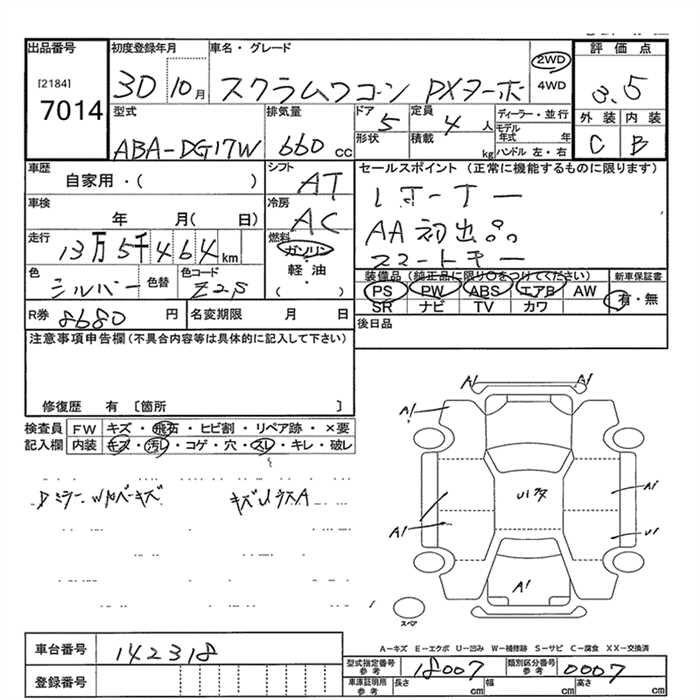 出品番号 初度登録年月 車名・グレード 評価点
[2184] 7014 30 10月 スクラムワゴン PXターボ 2WD 4WD 3.5
型式 排気量 ドア 定員 ディーラー・並行 外装 内装
ABA-DG17W 660 CC 5 4人 モデル年式 年 C B
形状 積載 kg ハンドル 左・右
車歴 シフト セールスポイント (正常に機能するものに限ります)
自家用・( ) AT 1オーナー
車検 冷房 AA初出品
年 月( 日) AC スマートキー
走行 燃料
13万5千464km ガソリン
色 色替 色コード 軽・油
シルバー Z2S ( )
装備品 (純正品に限り○をつけてください) 新車保証書
PS PW ABS エアB AW 有・無
SR ナビ TV カワ
R券 8680円 名変期限 月 日 後日品
注意事項申告欄(不具合内容等は具体的に記入して下さい)
修復歴 有 〔箇所 〕
検査員 FW キズ・飛石・ヒビ割・リペア跡・×要
記入欄 内装 キズ・汚レ・コゲ・穴・スレ・キレ・破レ
A1 A1
A1
A1
A1 U1
A1
スペア
A-キズ E-エクボ U-凹み W-補修跡 S-サビ C-腐食 XX-交換済
車台番号 142318
型式指定番号 参考 18007 類別区分番号 参考 0007
登録番号
車庫証明用 参考 長さ cm 幅 cm 高さ cm